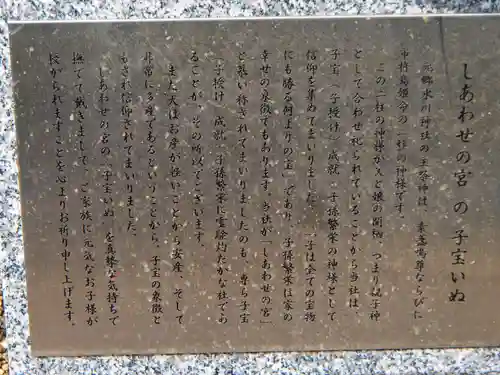 しあわせの宮 の 子宝いぬ
元郷氷川神社の主祭神は、素盞嗚尊ならびに
市杵島領命の二柱の神様です。
この二柱の神様が父と娘の関係、つまり親子神
として合わせ祀られていることから当社は、
子宝(子授け)成就、子孫繁栄の神様として
信仰を集めてまいりました。「子は全ての宝物
にも勝る何よりの宝」であり、子孫繁栄は家の
幸せの象徴でもあります。当社が「しあわせの宮」
と慕い称されてまいりましたのも、専ら子宝
(子授け)成就、子孫繁栄に霊験灼たかな社であ
ることが、その所以でございます。
また犬はお産が軽いことから安産、そして
非常に多産であるということから、子宝の象徴と
もされ信仰されてまいりました。
しあわせの宮の「子宝いぬ」を真摯な気持ちで
撫でて戴きまして、ご家族に元気なお子様が
授かられますことを心よりお祈り申し上げます。